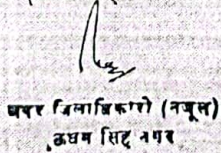 अपर जिलाधिकारी (नजूल)
ऊधम सिंह नगर